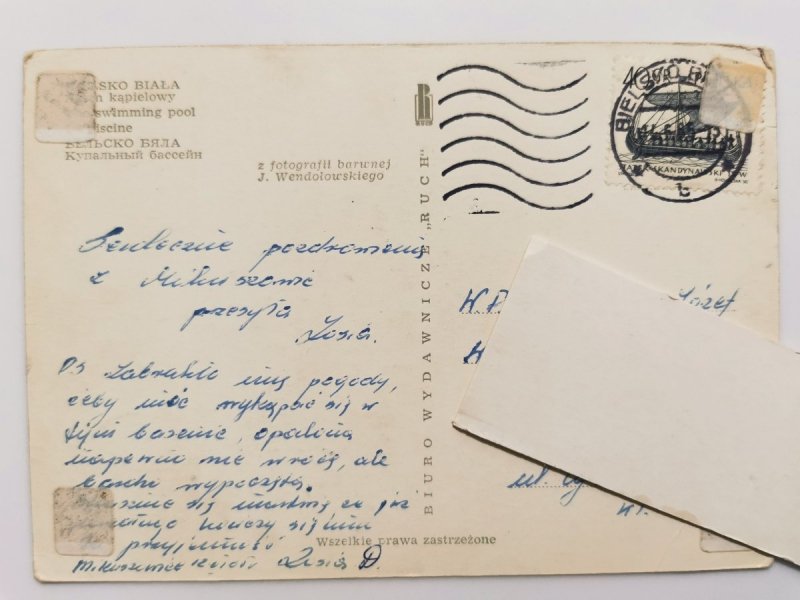 SKO BIAŁA
n kąpielowy
swimming pool
iscine
БЕЛЬСКО БЯЛА
Купальный бассейн
z fotografii barwnej
J. Wendołowskiego
RUCH
BIURO WYDAWNICZE „RUCH"
40
BIELSKO
SKANDYNAWSKI
b
Serdeczne pozdrowienia
z Mikuszowic
przesyła
Zosia.
PS Zabrakło mi pogody,
żeby móc wykąpać się w
tym basenie, opalona
napewno nie wrócę, ale
bardzo wypoczęta.
się martwię że już
kończy się
przyjemność
Mikuszowice Zosia D
W.P.
Józef
ul.
Wszelkie prawa zastrzeżone